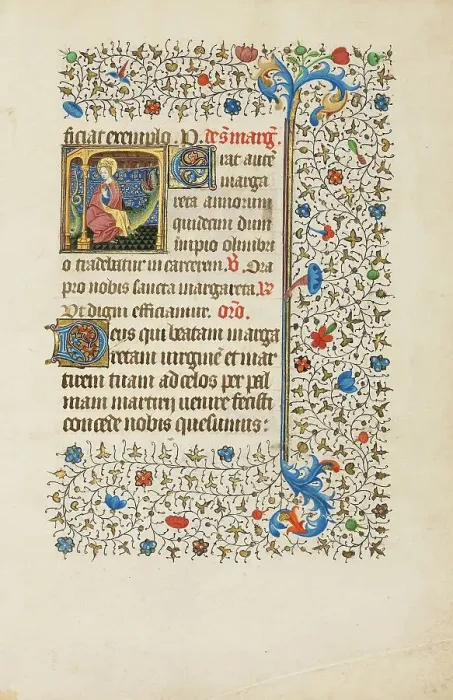 ficiat exemplo. V. de s͞ marg͞.
Erat aute͞
marga
reta annorum
quindecim dum
impio olimbri
o tradebatur in carcerem. V̷ Ora
pro nobis sancta margareta. R̷
Ut digni efficiamur. oro͞.
Deus qui beatam marga
retam uirgine͞ et mar
tirem tuam ad celos per pal
mam martirii uenire fecisti
concede nobis quesumus: